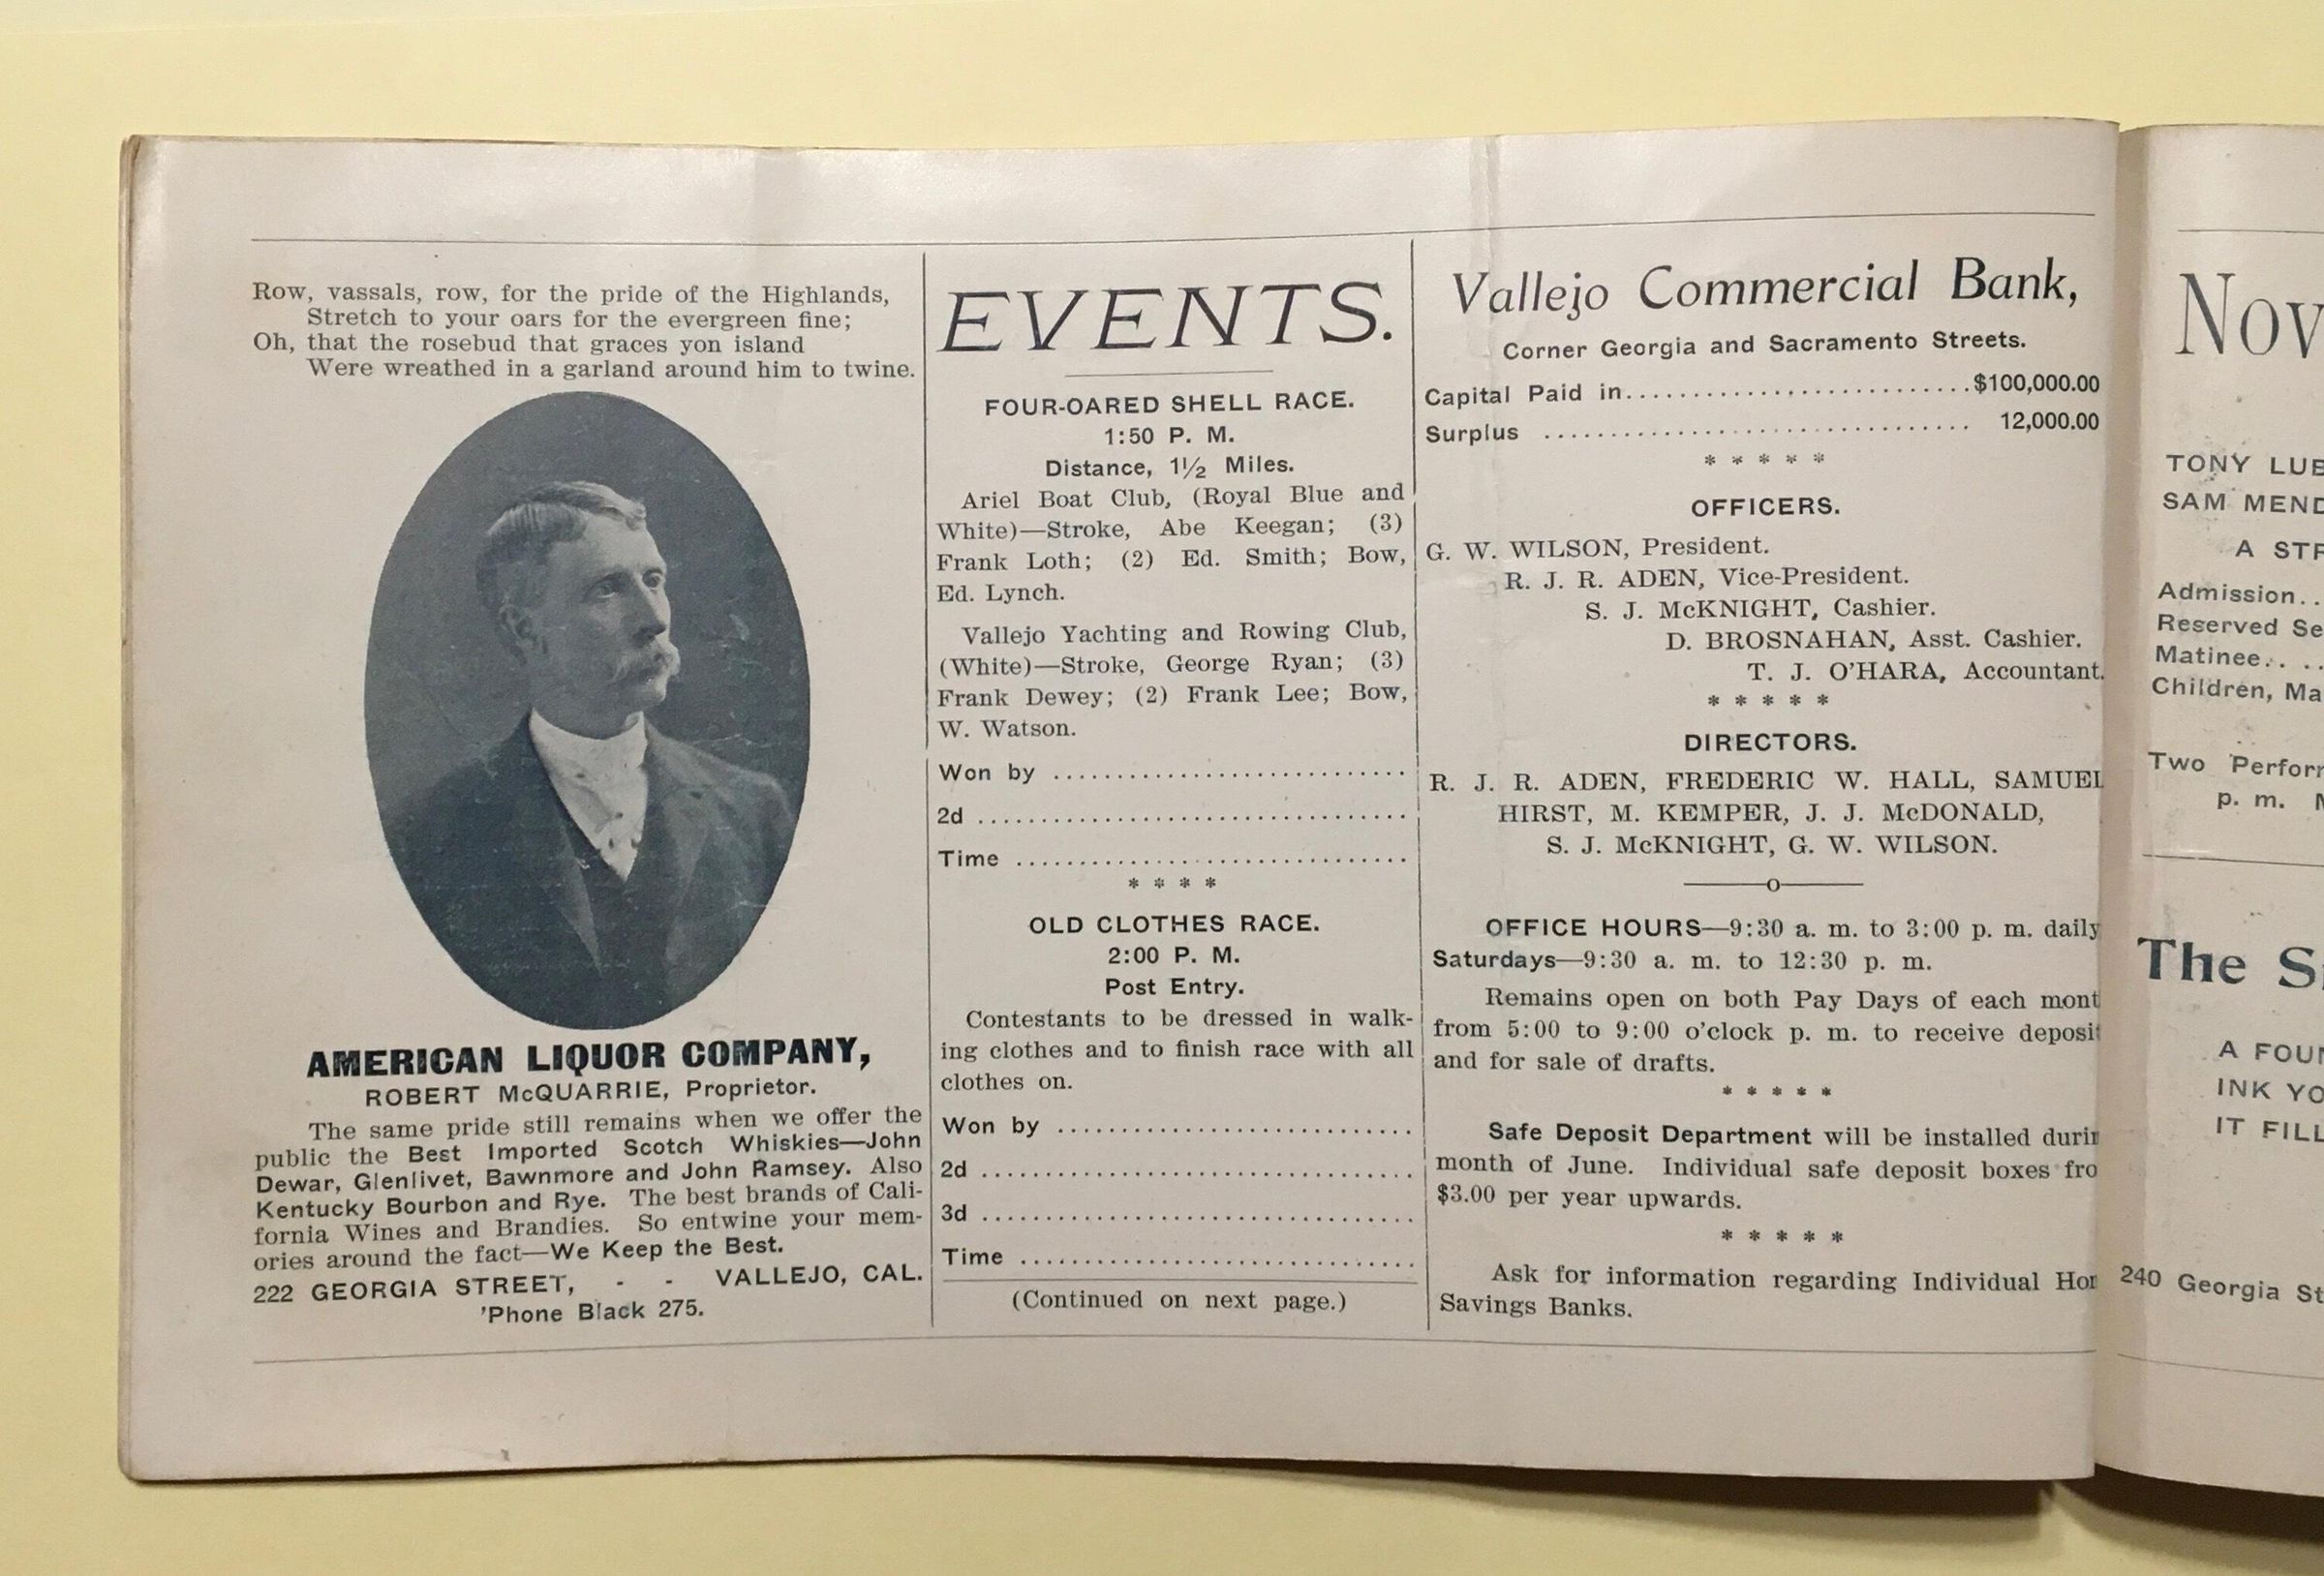 Row, vassals, row, for the pride of the Highlands,
Stretch to your oars for the evergreen fine;
Oh, that the rosebud that graces yon island
Were wreathed in a garland around him to twine.
AMERICAN LIQUOR COMPANY,
ROBERT McQUARRIE, Proprietor.
The same pride still remains when we offer the
public the Best Imported Scotch Whiskies—John
Dewar, Glenlivet, Bawnmore and John Ramsey. Also
Kentucky Bourbon and Rye. The best brands of Cali-
fornia Wines and Brandies. So entwine your mem-
ories around the fact—We Keep the Best.
222 GEORGIA STREET, - - VALLEJO, CAL.
'Phone Black 275.
EVENTS.
FOUR-OARED SHELL RACE.
1:50 P. M.
Distance, 1½ Miles.
Ariel Boat Club, (Royal Blue and
White)—Stroke, Abe Keegan; (3)
Frank Loth; (2) Ed. Smith; Bow,
Ed. Lynch.
Vallejo Yachting and Rowing Club,
(White)—Stroke, George Ryan; (3)
Frank Dewey; (2) Frank Lee; Bow,
W. Watson.
Won by ............................
2d ..................................
Time ...............................
* * * *
OLD CLOTHES RACE.
2:00 P. M.
Post Entry.
Contestants to be dressed in walk-
ing clothes and to finish race with all
clothes on.
Won by ............................
2d ..................................
3d ..................................
Time ...............................
(Continued on next page.)
Vallejo Commercial Bank,
Corner Georgia and Sacramento Streets.
Capital Paid in..........................$100,000.00
Surplus ................................ 12,000.00
* * * * *
OFFICERS.
G. W. WILSON, President.
R. J. R. ADEN, Vice-President.
S. J. McKNIGHT, Cashier.
D. BROSNAHAN, Asst. Cashier.
T. J. O'HARA, Accountant.
* * * * *
DIRECTORS.
R. J. R. ADEN, FREDERIC W. HALL, SAMUEL
HIRST, M. KEMPER, J. J. McDONALD,
S. J. McKNIGHT, G. W. WILSON.
——o——
OFFICE HOURS—9:30 a. m. to 3:00 p. m. daily
Saturdays—9:30 a. m. to 12:30 p. m.
Remains open on both Pay Days of each mont
from 5:00 to 9:00 o'clock p. m. to receive deposit
and for sale of drafts.
* * * * *
Safe Deposit Department will be installed durin
month of June. Individual safe deposit boxes fro
$3.00 per year upwards.
* * * * *
Ask for information regarding Individual Hom
Savings Banks.
Nov
TONY LUB
SAM MEND
A STR
Admission..
Reserved Se
Matinee.. ..
Children, Ma
Two Perfor
p. m. M
The S
A FOUN
INK YO
IT FILL
240 Georgia St